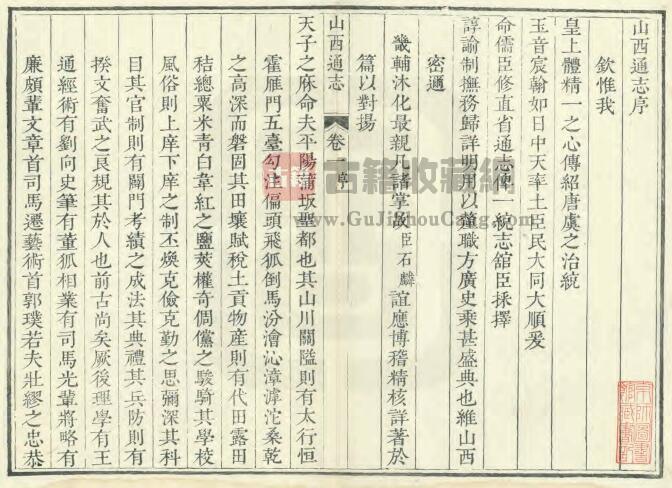 山西通志序
欽惟我
皇上體精一之心傳紹唐虞之治統
玉音宸翰如日中天率土臣民大同大順爰
命儒臣修直省通志便一統志館臣採擇
諄諭制撫務歸詳明用以董職方廣史乘甚盛典也維山西
密邇
畿輔沐化最親凡諸掌故臣石麟誼應博稽精核詳著於
篇以對揚
山西通志
卷一序
天子之庥命夫平陽蒲坂聖都也其山川關隘則有太行恒
霍雁門五臺勾注偏頭飛狐倒馬汾澮沁漳滹沱桑乾
之高深而磐固其田壤賦稅土貢物產則有代田露田
秸總粟米青白韋紅之鹽莢權奇倜儻之駿騎其學校
風俗則上庠下庠之制丕煥克儉克勤之思彌深其科
目其官制則有闢門考績之成法其典禮其兵防則有
揆文奮武之良規其於人也前古尚矣厥後理學有王
通經術有劉向史筆有董狐相業有司馬光輩將略有
廉頗輩文章首司馬遷藝術首郭璞若夫壯繆之忠恭
古籍
古籍收藏網
www.GuJiShouCang.com